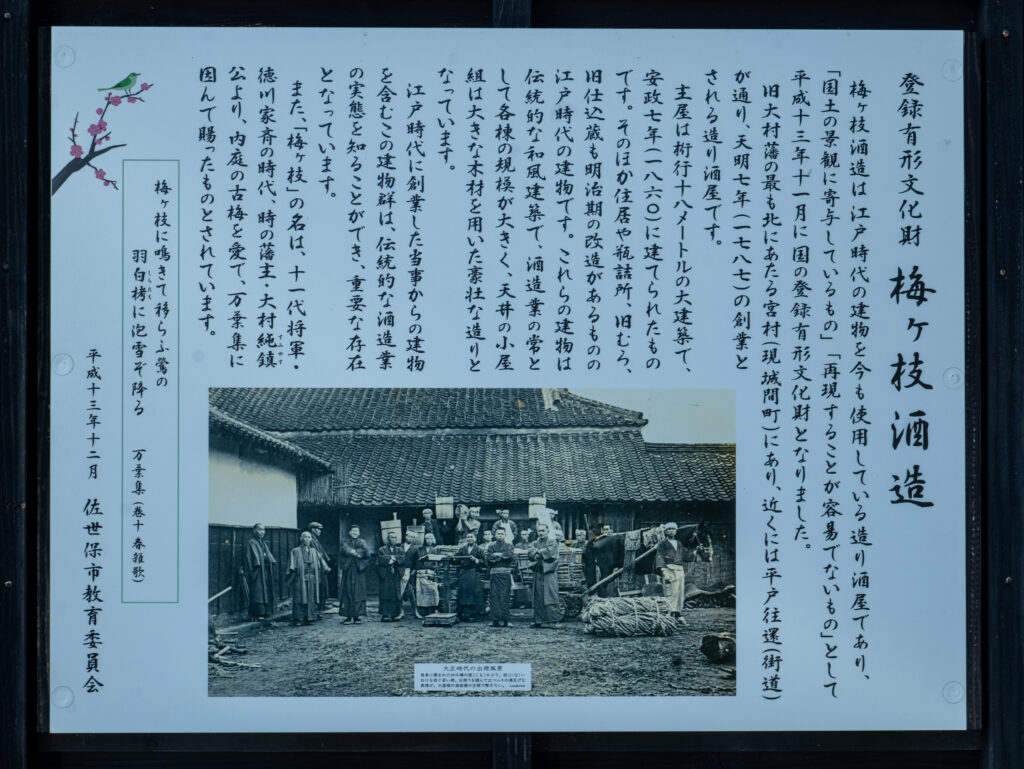 登録有形文化財 梅ヶ枝酒造
梅ヶ枝酒造は江戸時代の建物を今も使用している造り酒屋であり、
「国土の景観に寄与しているもの」「再現することが容易でないもの」として
平成十三年十一月に国の登録有形文化財となりました。
旧大村藩の最も北にあたる宮村(現城間町)にあり、近くには平戸往還(街道)
が通り、天明七年(一七八七)の創業と
される造り酒屋です。
主屋は桁行十八メートルの大建築で、
安政七年(一八六〇)に建てられたもの
です。そのほか住居や瓶詰所、旧むろ、
旧仕込蔵も明治期の改造があるものの
江戸時代の建物です。これらの建物は
伝統的な和風建築で、酒造業の常と
して各棟の規模が大きく、天井の小屋
組は大きな木材を用いた豪壮な造りと
なっています。
江戸時代に創業した当事からの建物
を含むこの建物群は、伝統的な酒造業
の実態を知ることができ、重要な存在
となっています。
また、「梅ヶ枝」の名は、十一代将軍・
徳川家斉の時代、時の藩主・大村純鎮
すみやす
公より、内庭の古梅を愛で、万葉集に
因んで賜ったものとされています。
梅ヶ枝に鳴きて移らふ鶯の
羽白栲に泡雪ぞ降る 万葉集(巻十 春雑歌)
平成十三年十二月 佐世保市教育委員会
大正時代の出荷風景